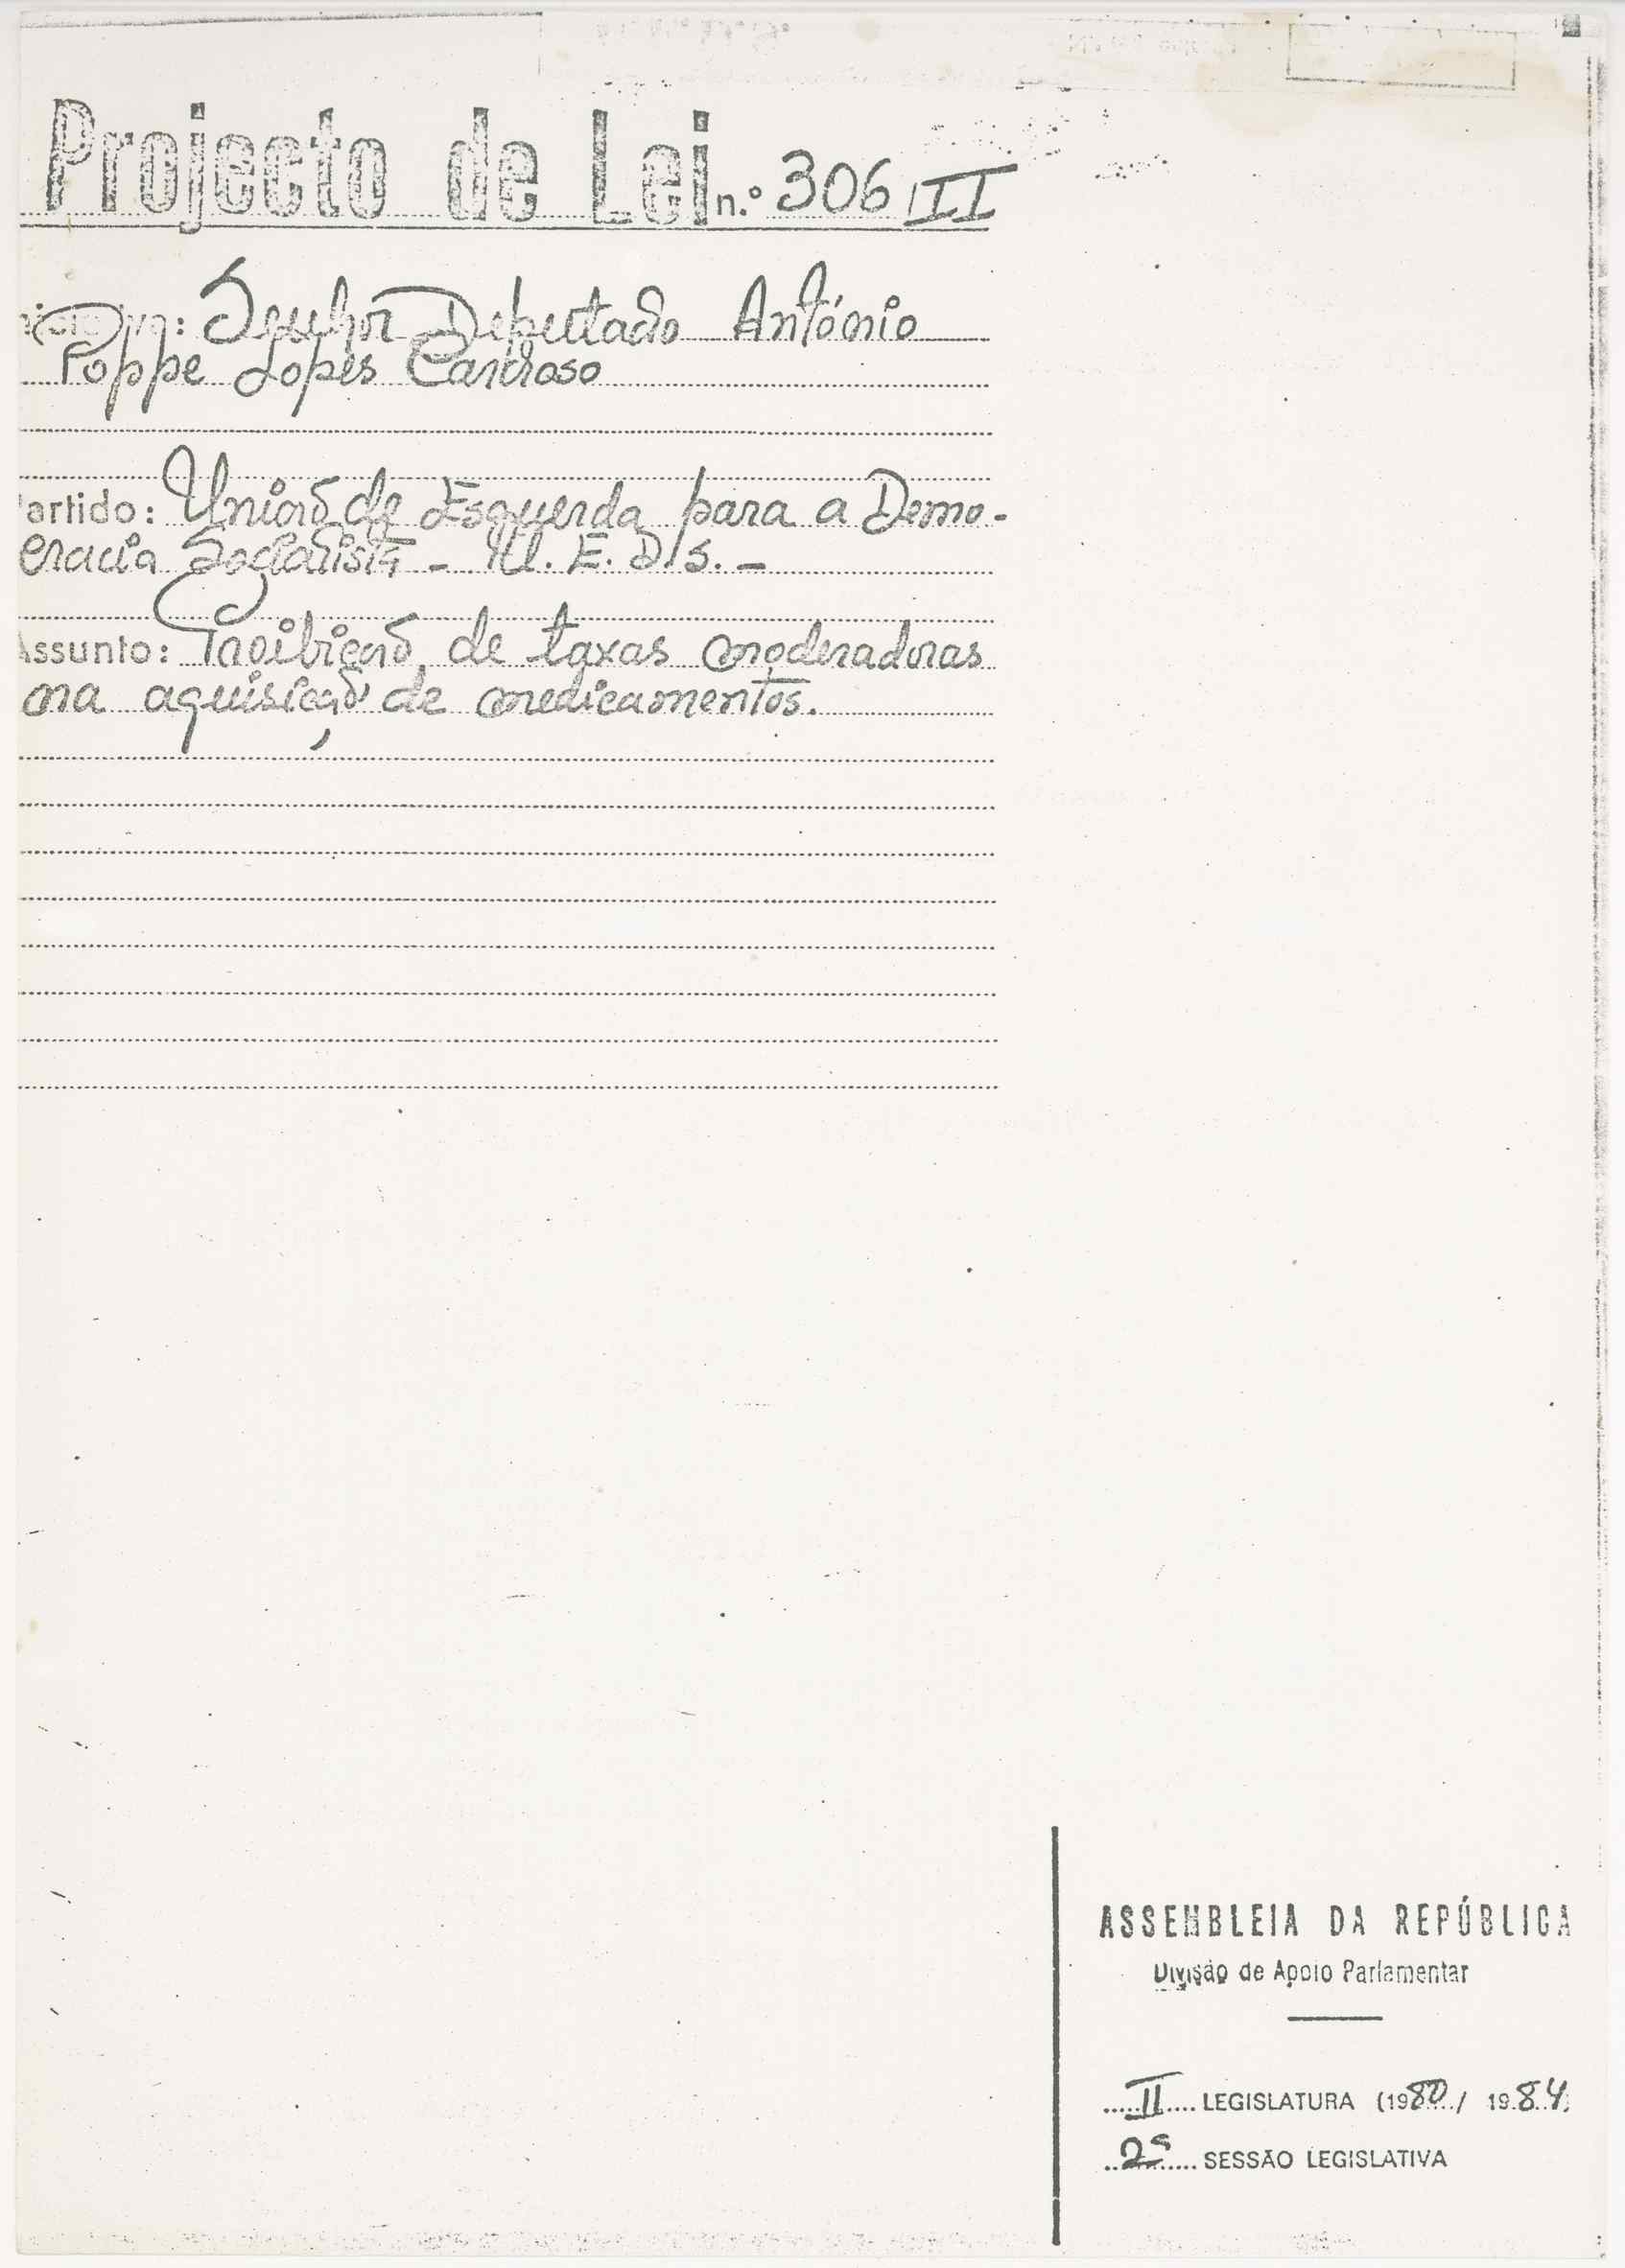 Projecto de Lei n.º 306/II
Senhor Deputado António
Poppe Lopes Cardoso
artido: União de Esquerda para a Demo-
cracia Socialista - U. E. D. S. -
Assunto: Proibição de taxas moderadoras
na aquisição de medicamentos.
ASSEMBLEIA DA REPÚBLICA
Divisão de Apoio Parlamentar
II LEGISLATURA (1980/ 1984)
2ª SESSÃO LEGISLATIVA